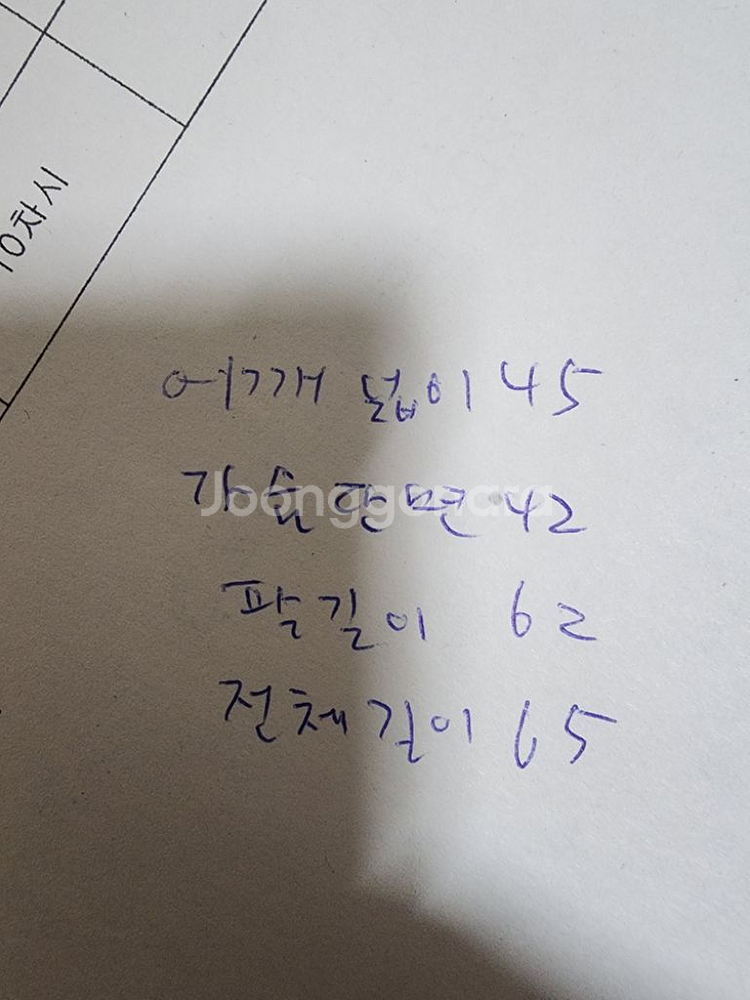 10차시
어깨 넓이 45
가슴단면 42
팔길이 62
전체길이 65
Joonggonara